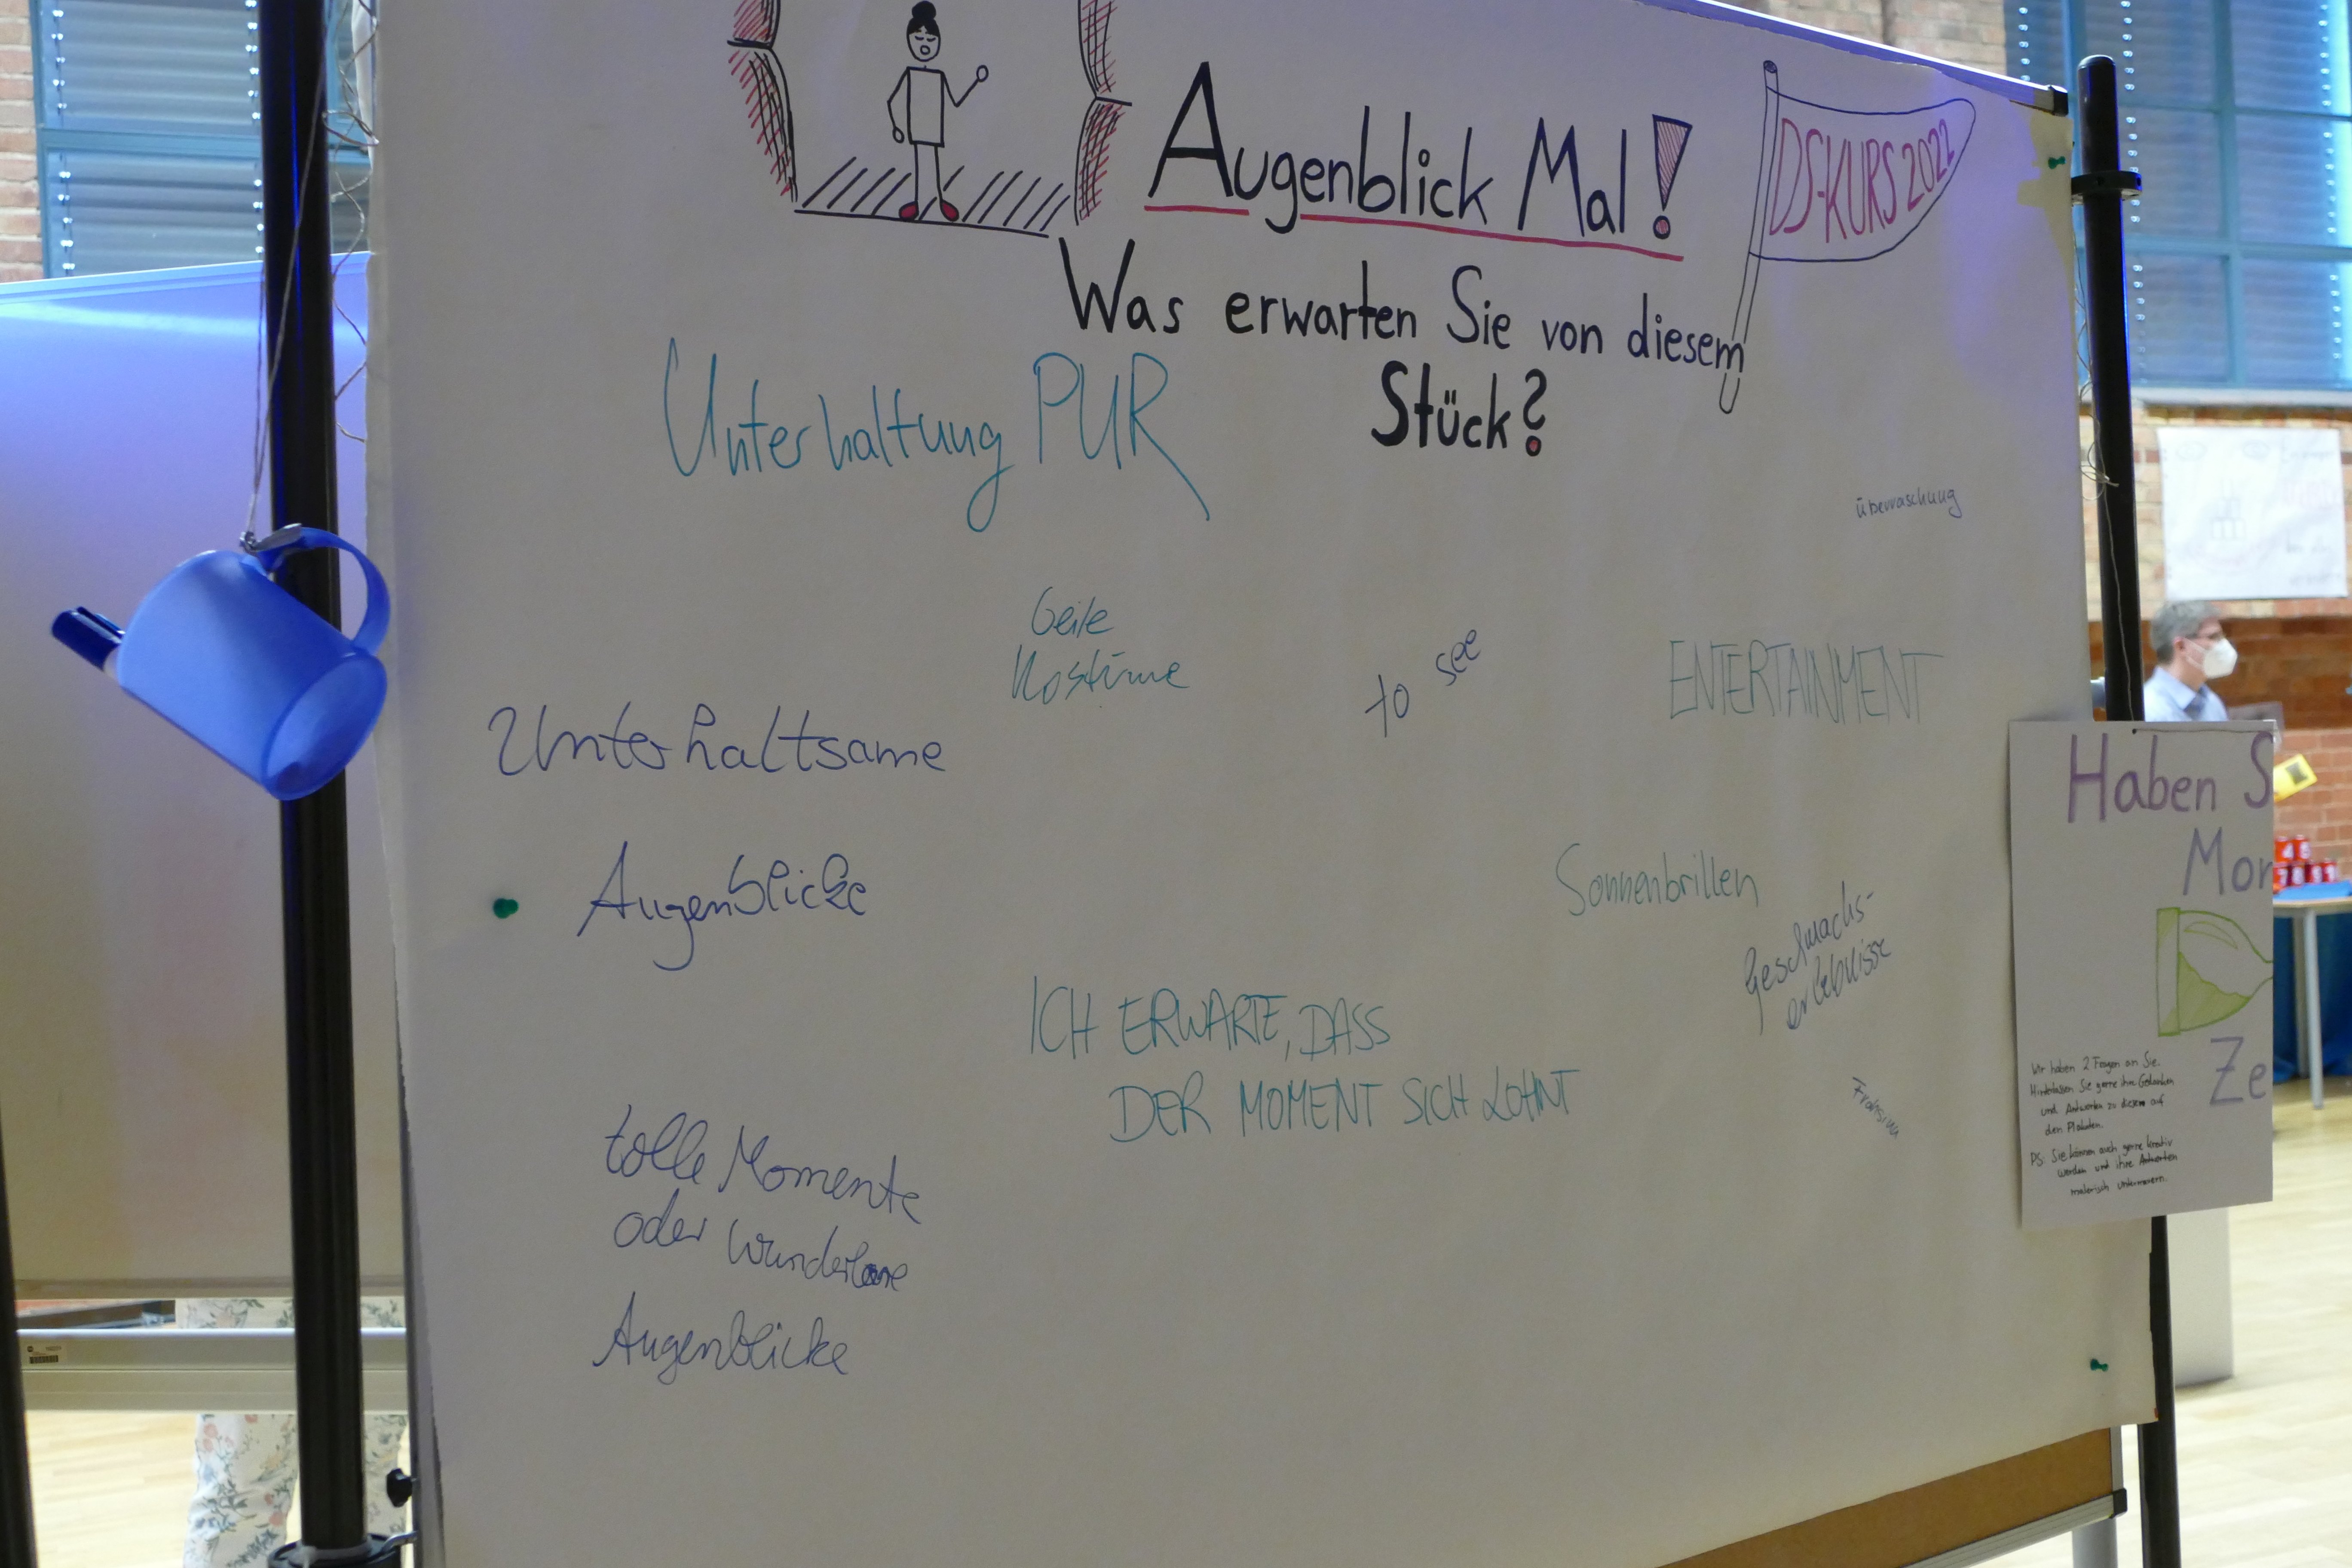 Augenblick Mal!
DS-KURS 2022
Was erwarten Sie von diesem
Stück?
Unterhaltung PUR
überraschung
Geile
Kostüme
to see
ENTERTAINMENT
Unterhaltsame
Augenblicke
Sonnenbrillen
Geschmacks-
erlebnisse
ICH ERWARTE, DASS
DER MOMENT SICH LOHNT
Frohsinn
tolle Momente
oder wunderbare
Augenblicke
Haben S
Mor
Ze
Wir haben 2 Fragen an Sie.
Hinterlassen Sie gerne ihre Gedanken
und Antworten zu diesen auf
den Plakaten.
PS: Sie können auch gerne kreativ
werden und ihre Antworten
malerisch untermauern.